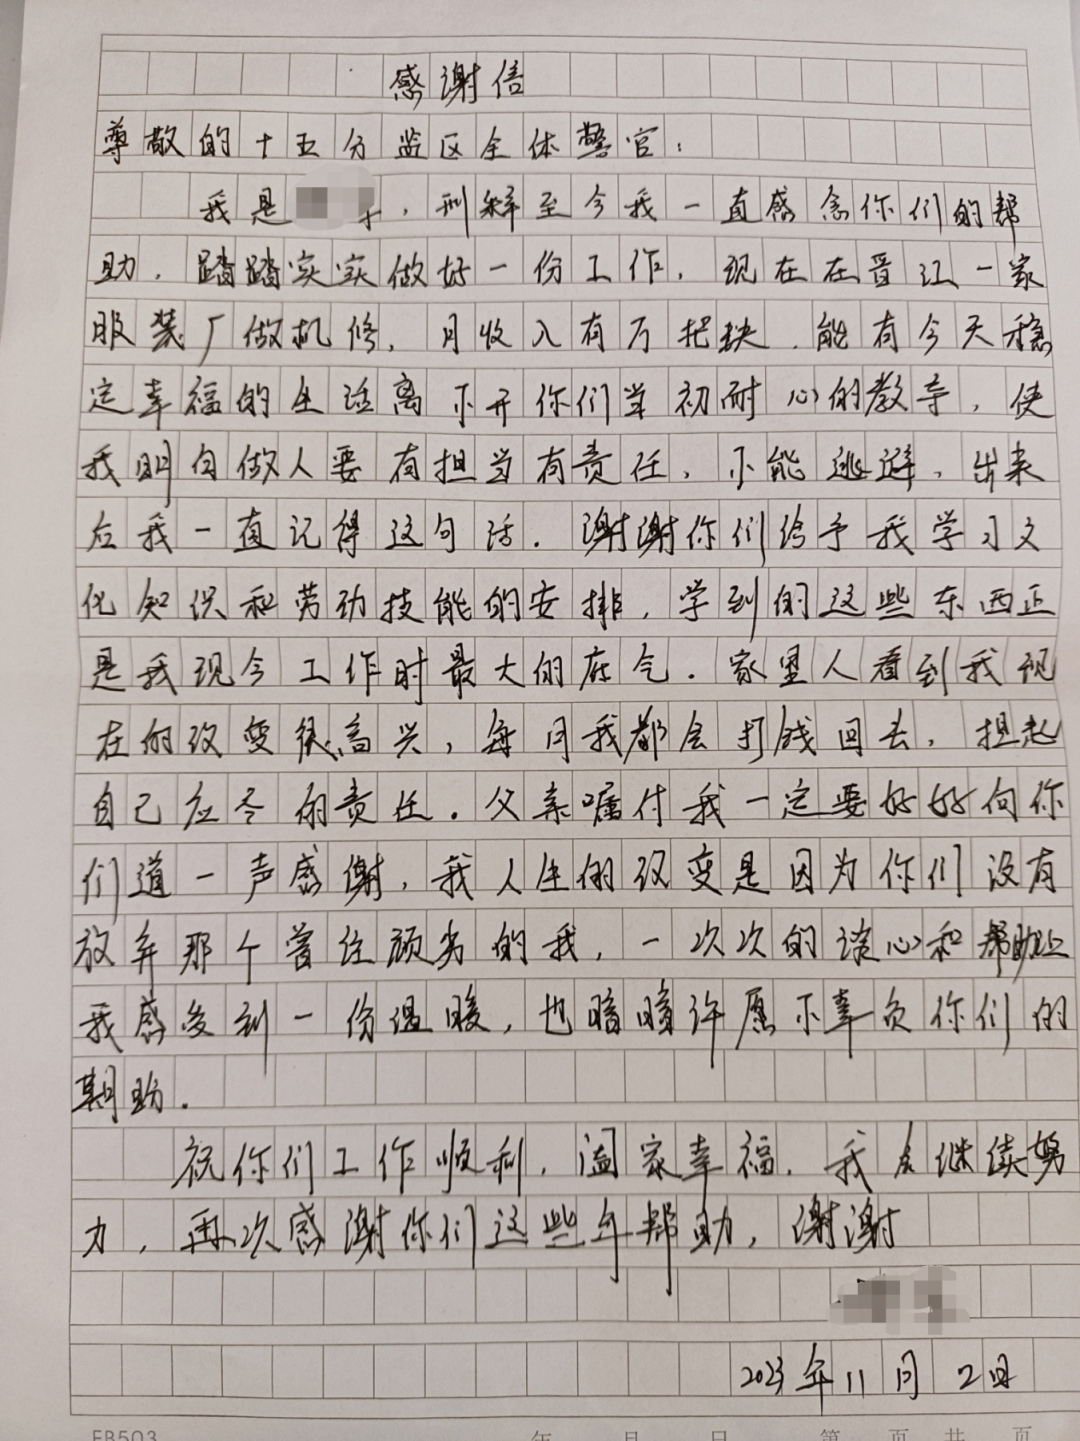 感谢信
尊敬的十五分监区全体警官：
我是，刑释至今我一直感念你们的帮
助，踏踏实实做好一份工作，现在在晋江一家
服装厂做机修，月收入有万把块，能有今天稳
定幸福的生活离不开你们当初耐心的教导，使
我明白做人要有担当有责任，不能逃避，出来
后我一直记得这句话．谢谢你们给予我学习文
化知识和劳动技能的安排，学到的这些东西正
是我现今工作时最大的底气．家里人看到我现
在的改变很高兴，每月我都会打钱回去，担起
自己应尽的责任．父亲嘱付我一定要好好向你
们道一声感谢，我人生的改变是因为你们没有
放弃那个曾经顽劣的我，一次次的谈心和帮助让
我感受到一份温暖，也暗暗许愿不辜负你们的
期助．
祝你们工作顺利，阖家幸福．我会继续努
力，再次感谢你们这些年帮助，谢谢
2023年11月2日
FB503
年 月 日 第 页 共 页